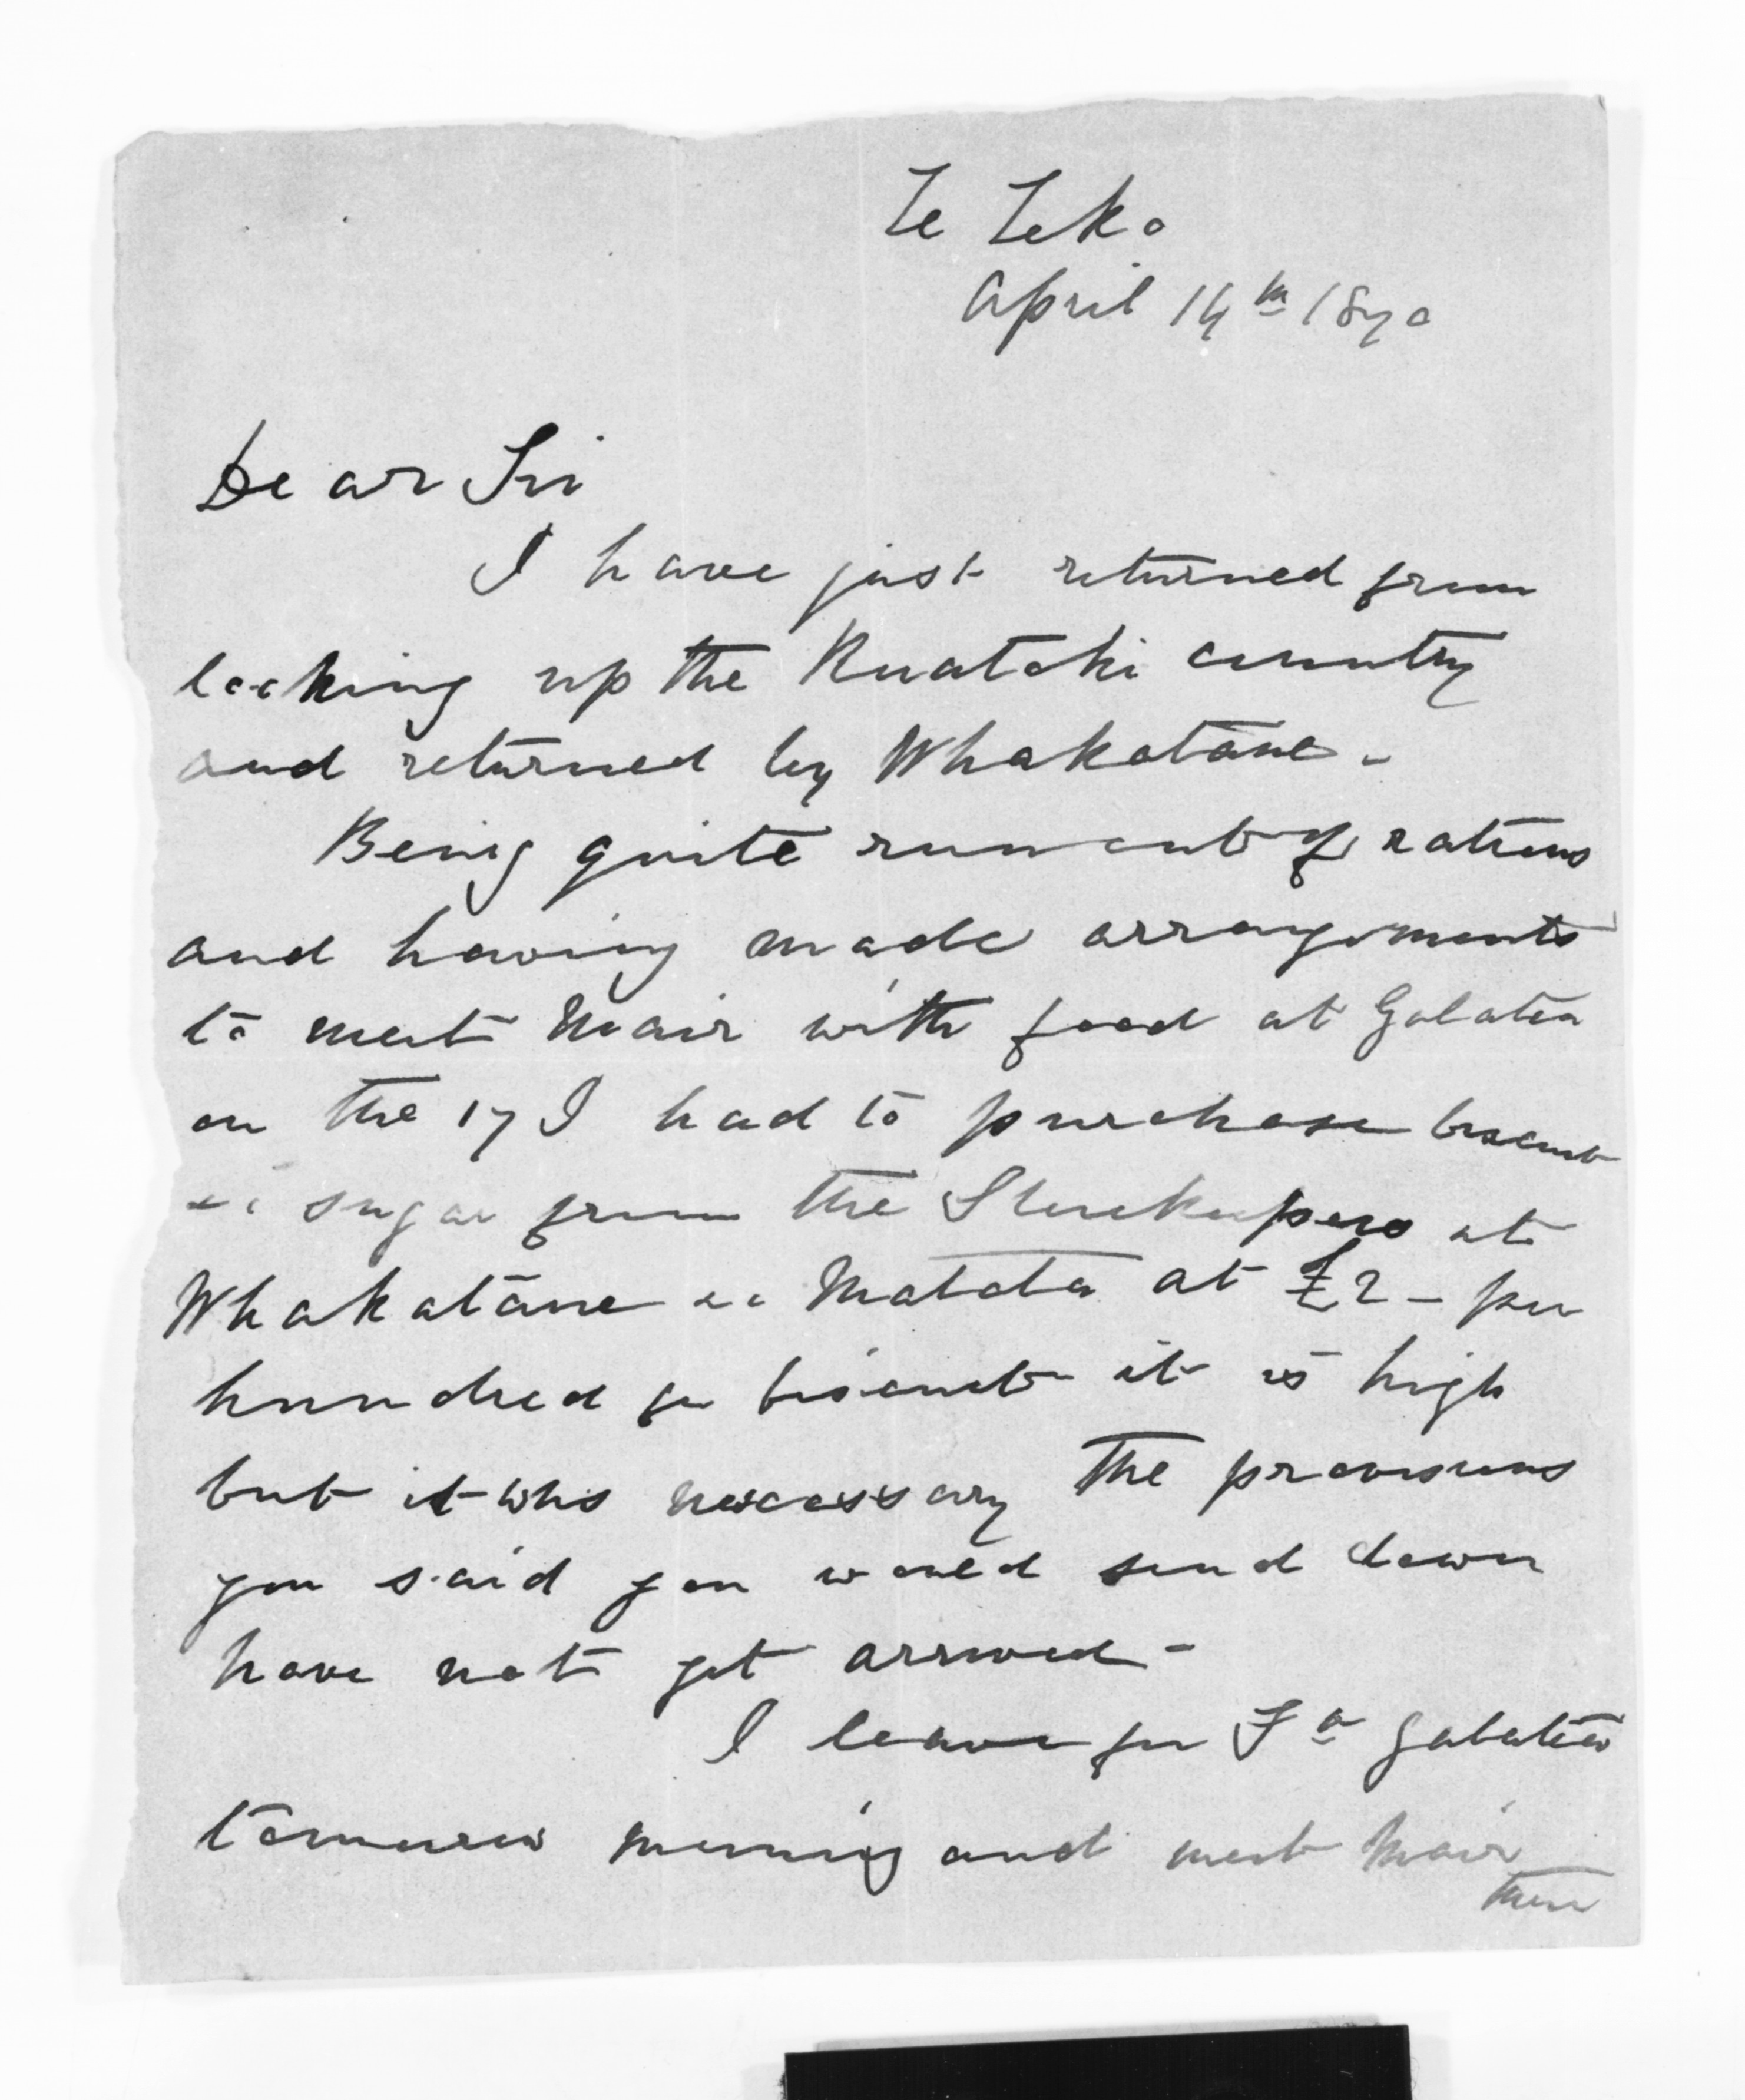 Te Teko
April 14th 1870
Dear Sir
I have just returned from
looking up the Ruatoki country
and returned by Whakatane -
Being quite run out of rations
and having made arrangements
to meet Mair with food at Galatea
on the 17 I had to purchase biscuit
&c sugar from the Storekeepers at
Whakatane &c Matata at £2 - per
hundred for biscuit it is high
but it was necessary The provisions
you said you would send down
have not yet arrived -
I leave for Ft Galatea
tomorrow morning and meet Mair
there